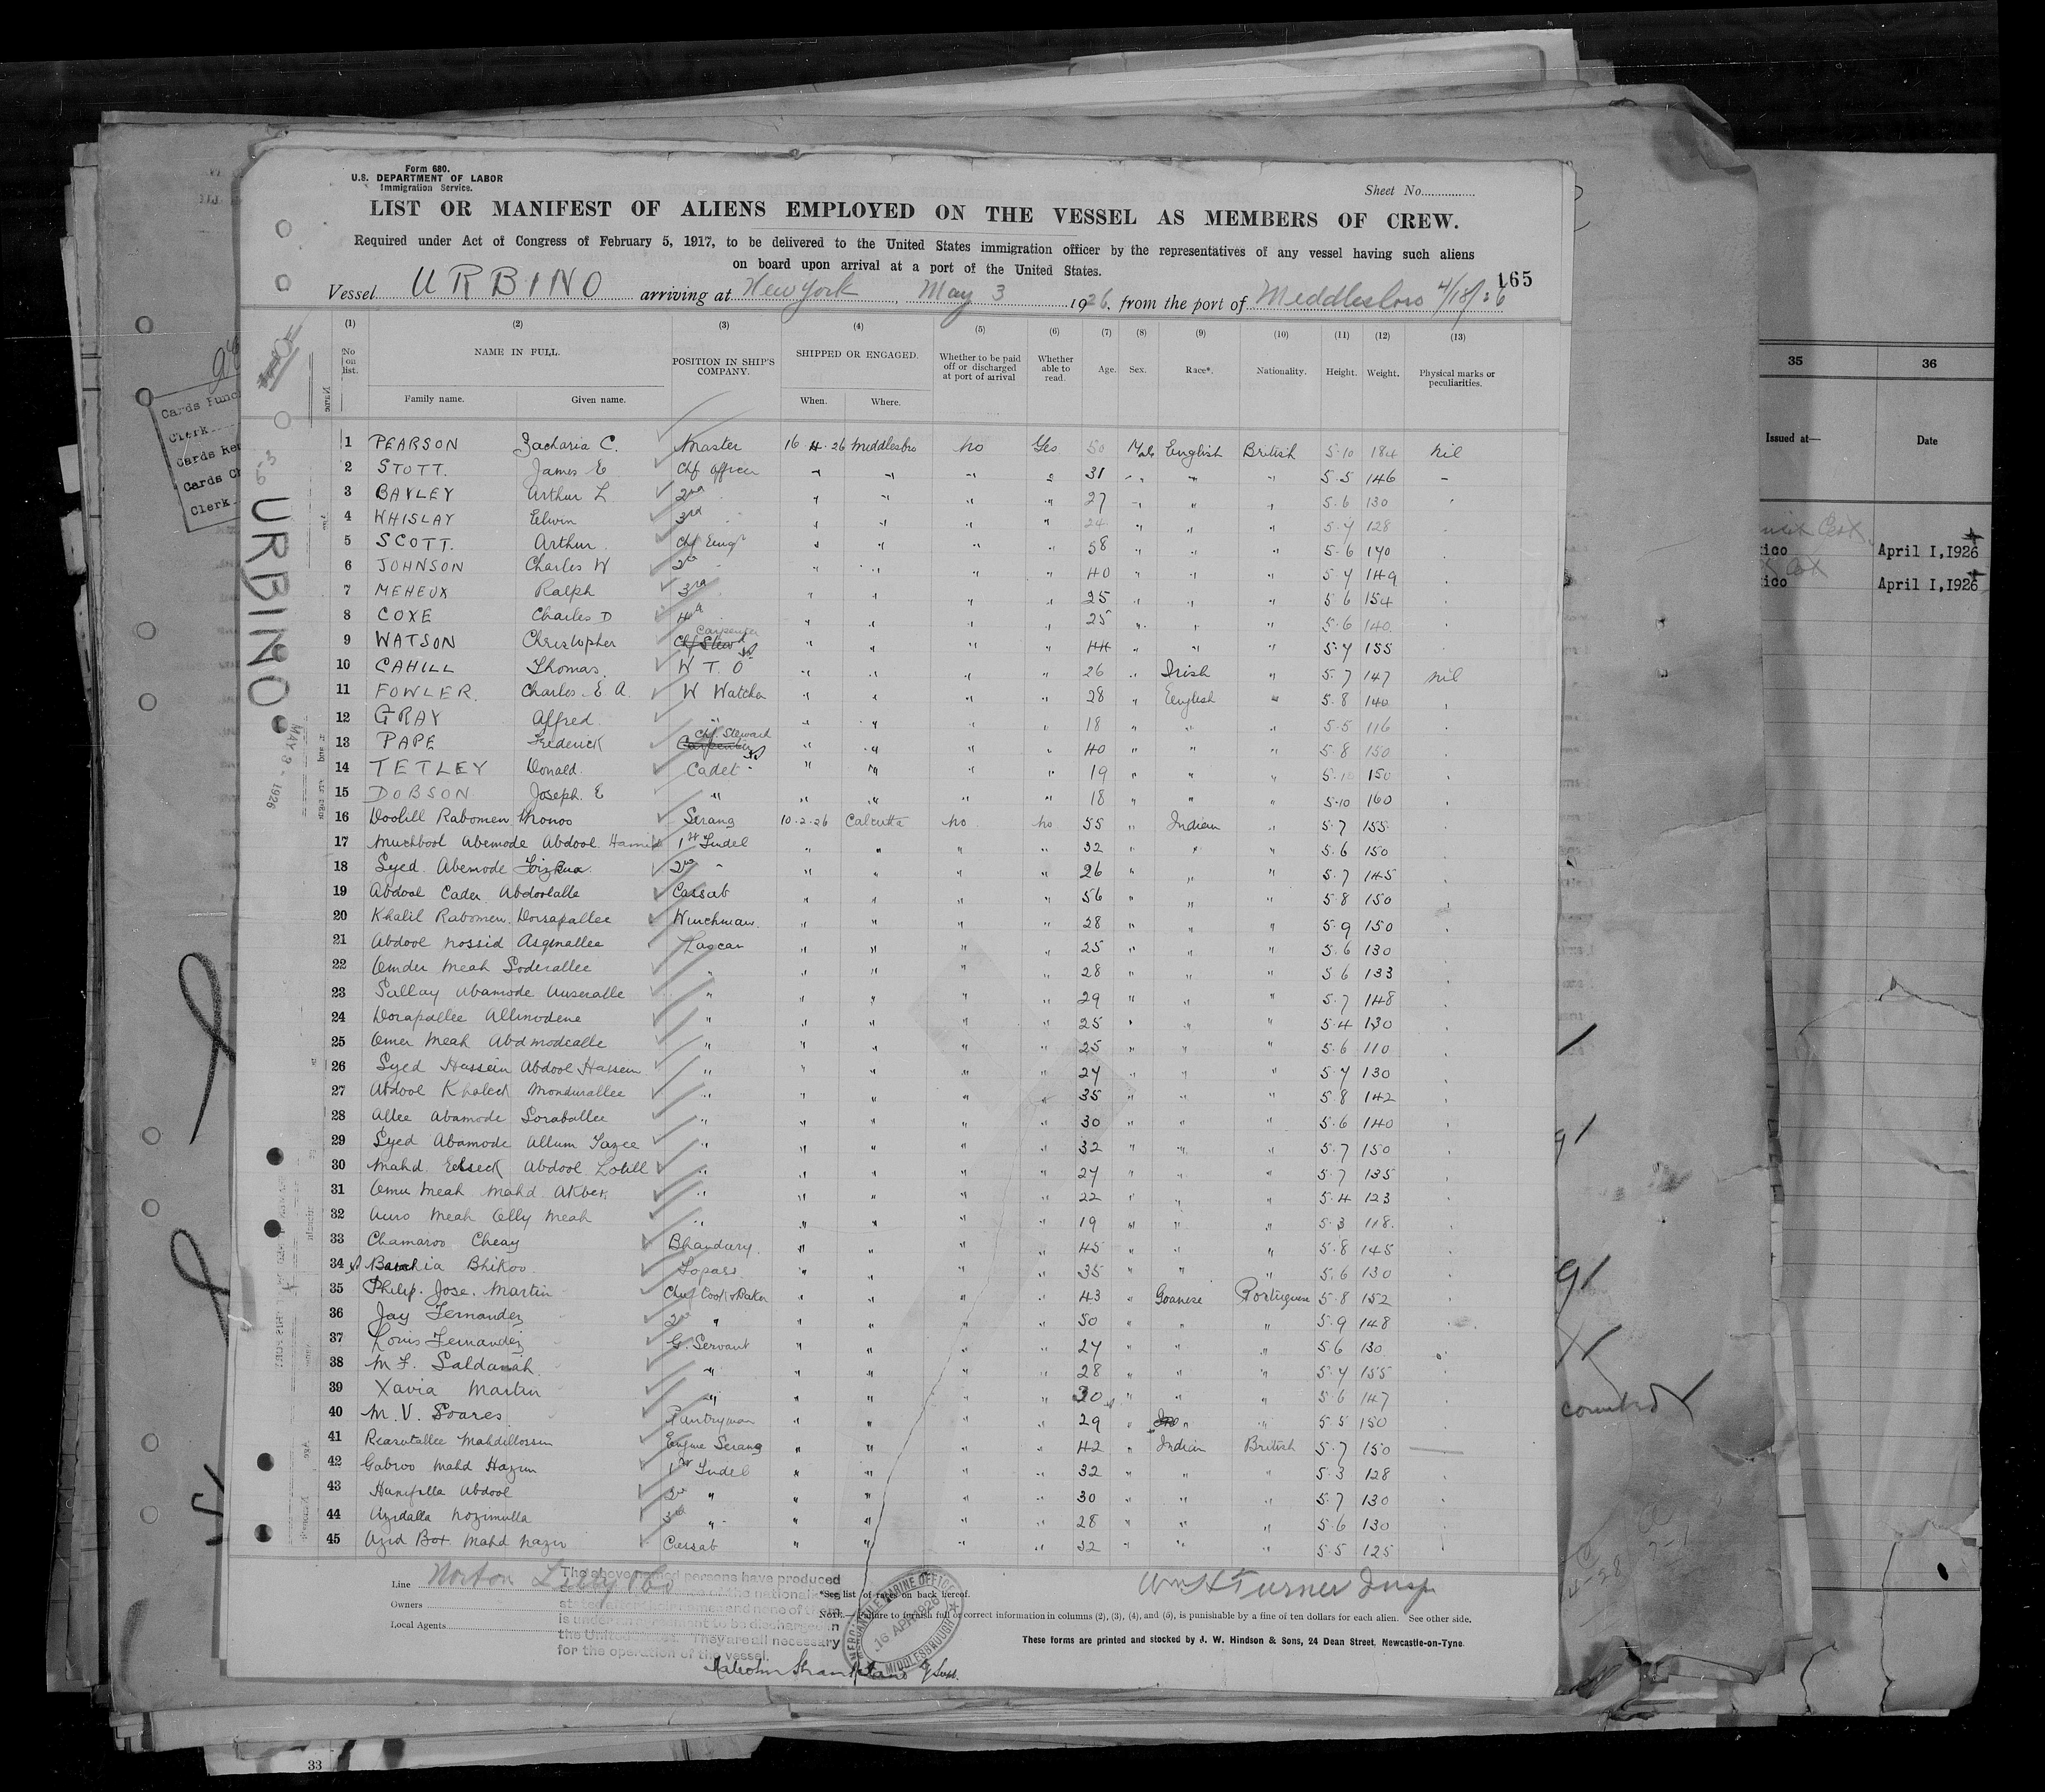 Form 680.
U.S. DEPARTMENT OF LABOR
Immigration Service.
Sheet No.
LIST OR MANIFEST OF ALIENS EMPLOYED ON THE VESSEL AS MEMBERS OF CREW.
Required under Act of Congress of February 5, 1917, to be delivered to the United States immigration officer by the representatives of any vessel having such aliens
on board upon arrival at a port of the United States.
165
Vessel URBINO arriving at New York, May 3 1926. from the port of Middlesboro 4/18/26
(1) (2) (3) (4) (5) (6) (7) (8) (9) (10) (11) (12) (13)
No on list. NAME IN FULL. POSITION IN SHIP'S COMPANY. SHIPPED OR ENGAGED. Whether to be paid off or discharged at port of arrival Whether able to read. Age. Sex. Race*. Nationality. Height. Weight. Physical marks or peculiarities.
Family name. Given name. When. Where.
1 PEARSON Zacharia C. Master 16 4 26 Middlesbro No Yes 50 Male English British 5·10 184 Nil
2 STOTT. James E Chf Officer " " " " 31 " " " 5·5 146 "
3 BAYLEY Arthur L 2nd " " " " 27 " " " 5·6 130
4 WHISLAY Edwin 3rd " " " " 24 " " " 5·7 128
5 SCOTT. Arthur Chf Engr " " " " 58 " " " 5·6 140
6 JOHNSON Charles W 2nd " " " " 40 " " " 5·7 149
7 MEHEUX Ralph 3rd " " " " 25 " " " 5·6 154
8 COXE Charles D 4th " " " " 25 " " " 5·6 140
9 WATSON Christopher Chf Stewd Carpenter " " " " 44 " " " 5·7 155
10 CAHILL Thomas. W T. O " " " " 26 " Irish " 5·7 147 Nil
11 FOWLER. Charles. E A. W Watcher " " " " 28 " English " 5·8 140
12 GRAY Alfred " " " " " 18 " " " 5·5 116
13 PAPE Frederick Carpenter Chf. Steward " " " " 40 " " " 5·8 150
14 TETLEY Donald Cadet " " " " 19 " " " 5·10 150
15 DOBSON Joseph. E " " " " " 18 " " " 5·10 160
16 Doolill Rabomen Serang 10·2·26 Calcutta No No 55 " Indian " 5·7 155
17 Muchbool Abemode Abdool Hamid 1st Tindel " " " " 32 " " " 5·6 150
18 Syed Abemode 2nd " " " " " 26 " " " 5·7 145
19 Abdool Cader Abdoolalle Cassab " " " " 56 " " " 5·8 150
20 Khalil Rabomen Dorsapallee Winchman. " " " " 28 " " " 5·9 150
21 Abdool Nossid Asginallee Lascar " " " " 25 " " " 5·6 130
22 Omder Meah Soderallee " " " " " 28 " " " 5·6 133
23 Sallay Abamode Unseralle " " " " " 29 " " " 5·7 148
24 Dorapallee Allimodene " " " " " 25 " " " 5·4 130
25 Omer Meah Abdmodealle " " " " " 25 " " " 5·6 110
26 Syed Hassein Abdool Hassein " " " " " 24 " " " 5·7 130
27 Abdool Khaleck Mondurallee " " " " " 35 " " " 5·8 142
28 Allee Abamode Soraballee " " " " " 30 " " " 5·6 140
29 Syed Abamode Allum Gazee " " " " " 32 " " " 5·7 150
30 Mahd. Abdool Lotill " " " " " 24 " " " 5·7 135
31 Omu Meah Mahd Akber " " " " " 22 " " " 5·4 123
32 Auro Meah Olly Meah " " " " " 19 " " " 5·3 118.
33 Chamaroo Cheay Bhandary. " " " " 45 " " " 5·8 145
34 Bhikoo Topass. " " " " 35 " " " 5·6 130
35 Philip. Jose. Martin Chef Cook & Baker " " " " 43 " Goanese Portuguese 5·8 152
36 Jay Fernandez 2nd " " " " " 50 " " " 5·9 148
37 Louis Fernandez G. Servant " " " " 24 " " " 5·6 130
38 M F. Saldanah " " " " " 28 " " " 5·7 155
39 Xavia Martin " " " " " 30 " " " 5·6 147
40 M. V. Soares Pantryman " " " " 29 " " " 5·5 150
41 Reasutallee Mahdillossen Engine Serang " " " " 42 " Indian British 5·7 150
42 Gabroo Mahd Hazim 1st Tindel " " " " 32 " " " 5·3 128
43 Hanifalla Abdool 2nd " " " " " 30 " " " 5·7 130
44 Azidalla Nozimulla 3rd " " " " " 28 " " " 5·6 130
45 Azid Box Mahd Nazir Cassab " " " " 32 " " " 5·5 125
Line Norton Lilly & Co
Owners
Local Agents
The above named persons have produced
the United States. They are all necessary
for the operation of the vessel.
MERCANTILE MARINE OFFICE
16 APR 1926
MIDDLESBROUGH
Wm H Turner Insp
*See list of races on back hereof.
NOTE.—Failure to furnish full or correct information in columns (2), (3), (4), and (5), is punishable by a fine of ten dollars for each alien. See other side.
These forms are printed and stocked by J. W. Hindson & Sons, 24 Dean Street, Newcastle-on-Tyne.
URBINO
5-3
MAY 3 - 1926
Cards Punc
Clerk
Cards Re
Cards C
Clerk
35 36
Issued at— Date
ico April 1,1926
ico April 1,1926
counted
33